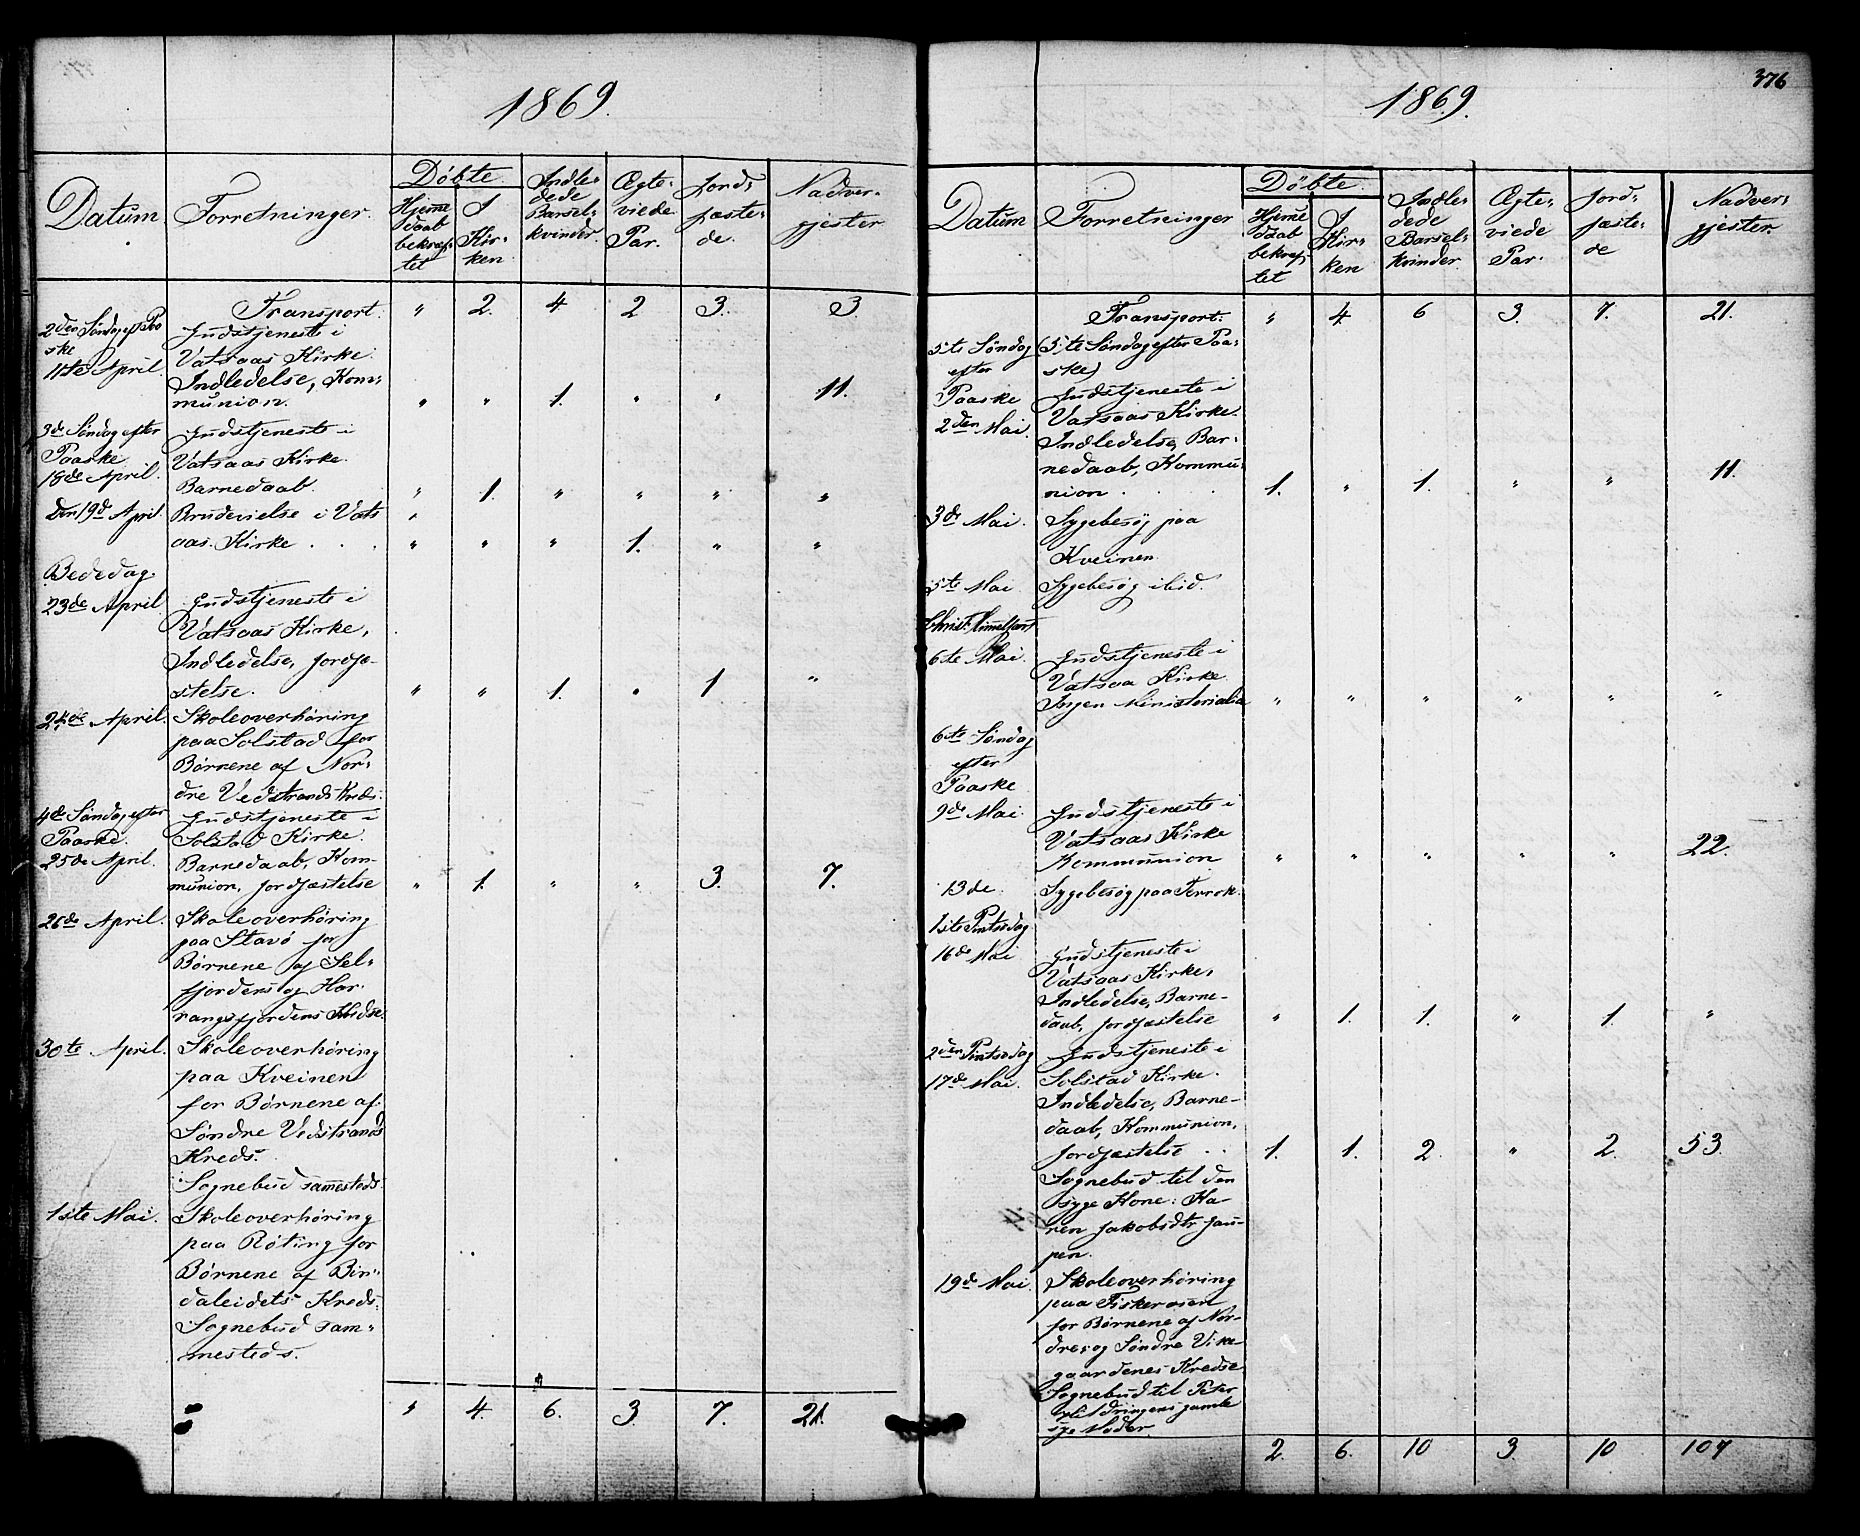 1869.
Datum Forretninger. Döbte. Hjeme daab bekræf- tet I Kir- ken Indle- dede Barsel- kvinder. Ægte- viede Par. Jord- fæste- de. Nadver- gjester
Transport. " 2. 4. 2 3. 3.
2den Søndag eft. Paa Gudstjeneste i
ske Vatsaas Kirke.
11te April. Indledelse, Kom-
munion. " " 1. " " 11.
3de Søndag efter Gudstjeneste i
Paaske Vatsaas Kirke.
18de April. Barnedaab. " 1. " " " "
Den 19de April. Brudevielse i Vats
aas Kirke . . . " " " 1. " "
Bededag.
23de April Gudstjeneste i
Vatsaas Kirke,
Indledelse, Jordfæ-
stelse. " " 1. " 1 "
24de April. Skoleoverhøring
paa Solstad for
Børnene af Nor-
dre Vedstrands Kreds.
4de Søndag efter Gudstjeneste i
Paaske. Solstad Kirke.
25de April. Barnedaab, Kom-
munion, Jordfæstelse " 1. " " 3. 7.
26de April. Skoleoverhøring
paa Stavø for
Børnene af Sel-
fjordens og Hor-
rangsfjordens Kredse.
30te April. Skoleoverhøring
paa Kveinen
for Børnene af
Søndre Vedstrands
Kreds.
Sognebud sammesteds.
1ste Mai. Skoleoverhøring
paa Røting for
Børnene af Bin-
daleidets Kreds.
Sognebud sam-
mesteds.
" 4. 6. 3. 7. 21.
376
1869.
Datum Forretninger Döbte. Hjeme daab bekræf- tet I Kir- ken Indle- dede Barsel- kvinder. Ægte- viede Par. Jord- fæste- de Nadver- gjester.
Transport. " 4. 6 3. 7. 21.
5te Søndag (5te Søndag efter Paa-
efter ske)
Paaske Gudstjeneste i
2den Mai. Vatsaas Kirke.
Indledelse, Bar-
nedaab, Kommu-
nion . . . 1. " 1. " " 11.
3de Mai. Sygebesøg paa
Kveinen
5te Mai Sygebesøg ibid.
Christi Himmelfart
6te Mai. Gudstjeneste i
Vatsaa Kirke
Ingen Ministerialia " " " " " "
6te Søndag
efter
Paaske
9de Mai. Gudstjeneste i
Vatsaas Kirke
Kommunion " " " " " 22.
13de. Sygebesøg paa Terrok.
1ste Pintsedag
16de Mai Gudstjeneste i
Vatsaas Kirke,
Indledelse, Barne-
daab, Jordfæstelse " 1. 1. " 1. "
2den Pintsedag Gudstjeneste i
17de Mai. Solstad Kirke.
Indledelse, Barne-
daab, Kommunion,
Jordfæstelse . . 1. 1. 2. " 2. 53.
Sognebud til den
syge Kone: Ka-
ren Jakobsdtr Jau-
pen.
19de Mai. Skoleoverhøring
paa Fiskerosen
for Børnene af Nor-
dre og Søndre Vike-
gaardenes Kredse
Sognebud til Peter
gamle
syge Moder.
2. 6. 10 3 10 107